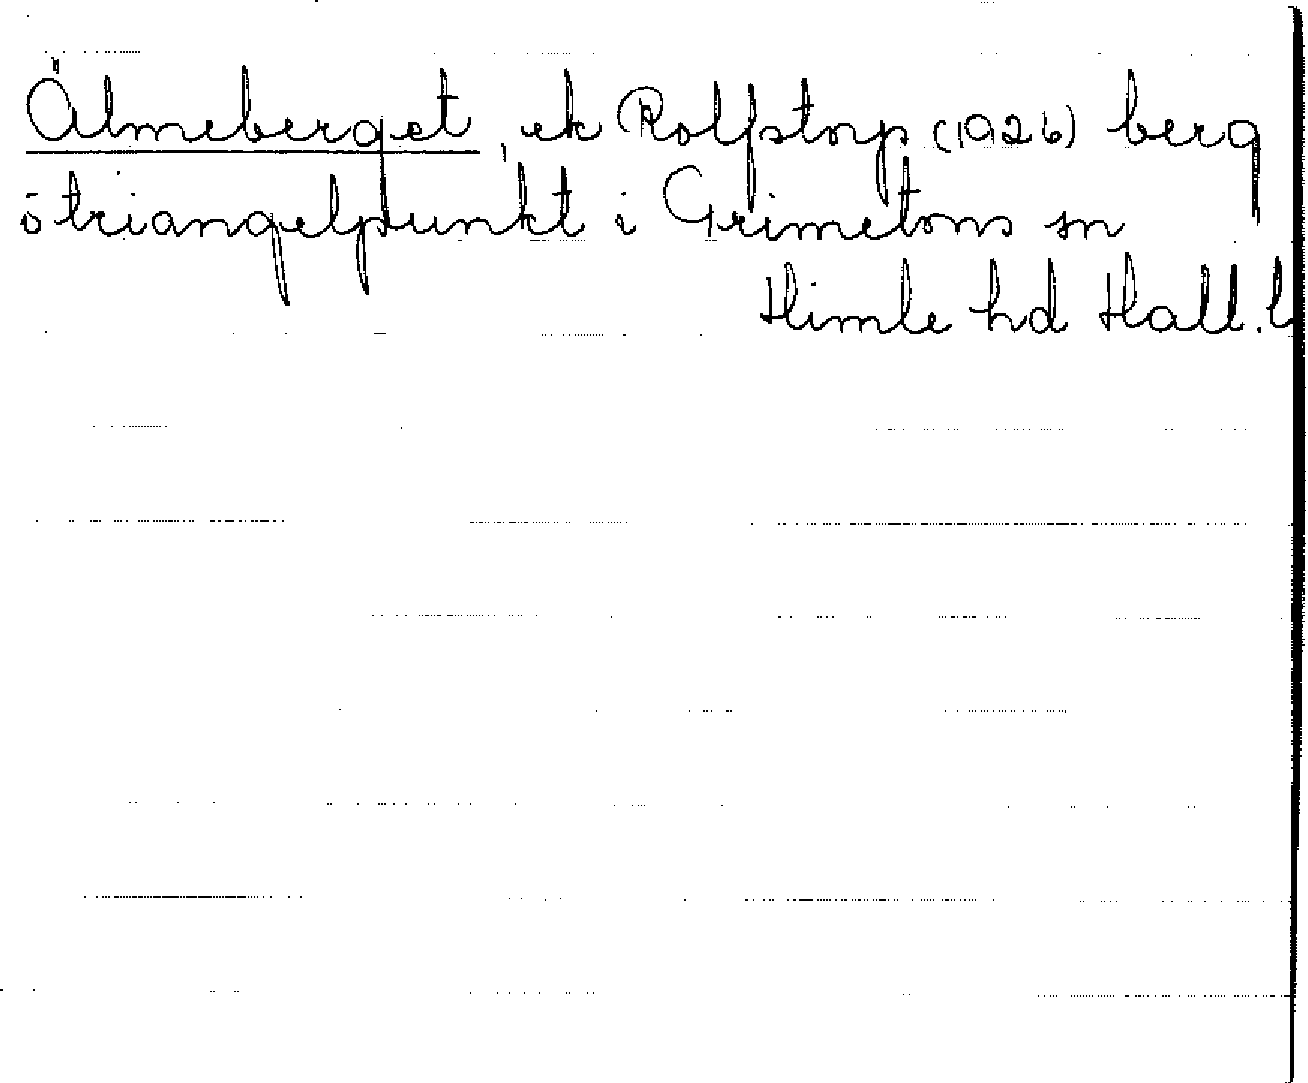 Älmeberget, ek Rolfstorp (1926) berg
ö triangelpunkt i Grimetons sn
Himle hd Hall. l